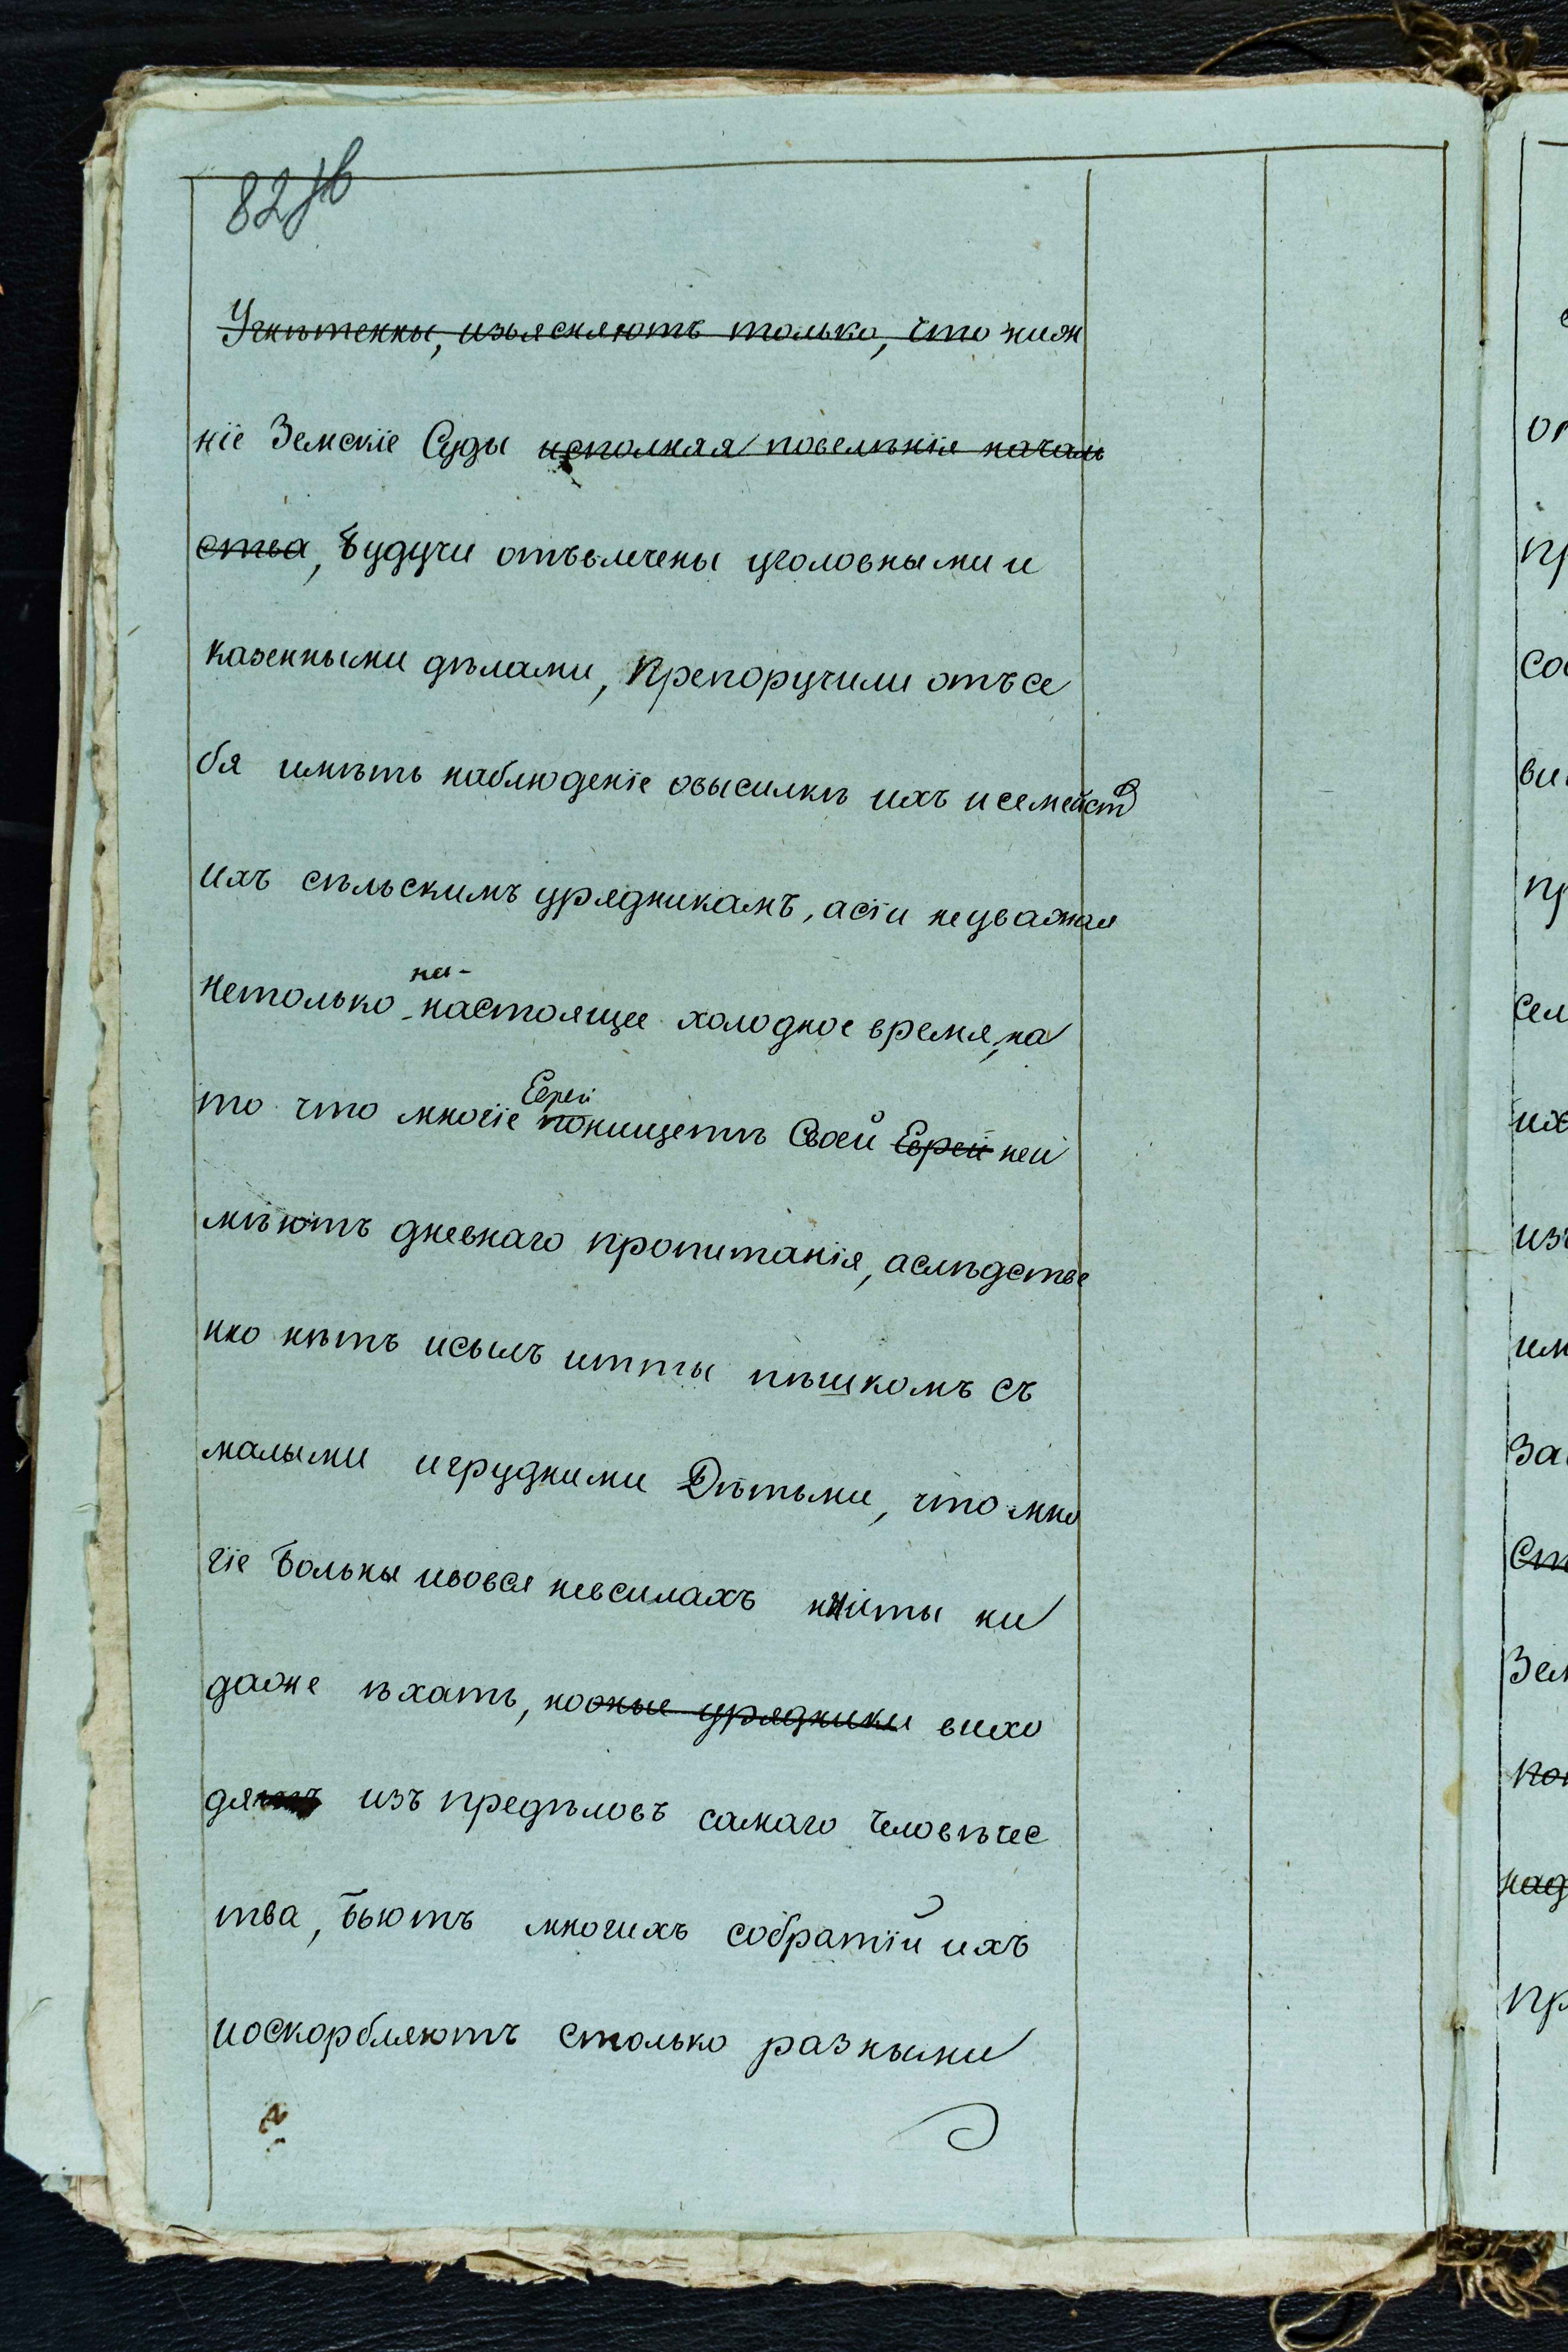 82 об
Угнѣтенны, изъясняютъ только, что ниж
ніе Земскіе Суды исполняя повелѣнія началь
ства, будучи отъвлечены уголовными и
казенными дѣлами, Препоручили отъ се
бя имѣть наблюденіе овысилкѣ ихъ и семейств
ихъ сѣльскимъ урядникамъ, а сіи неуважая
нетолько на- настоящее холодное время, на
то что многіе Евреи понищетѣ Своей Евреи неи
мѣютъ дневнаго пропитанія, а слѣдстве
нно нѣтъ исылъ итты пѣшкомъ съ
малыми игрудними Дѣтьми, что мно
гіе больны ивовся невсилахъ нииты ни
даже ѣхать, нооные урядники вихо
дятъ изъ предѣловъ самаго человѣчес
тва, бьютъ многихъ собратій ихъ
иоскорбляютъ столько разными